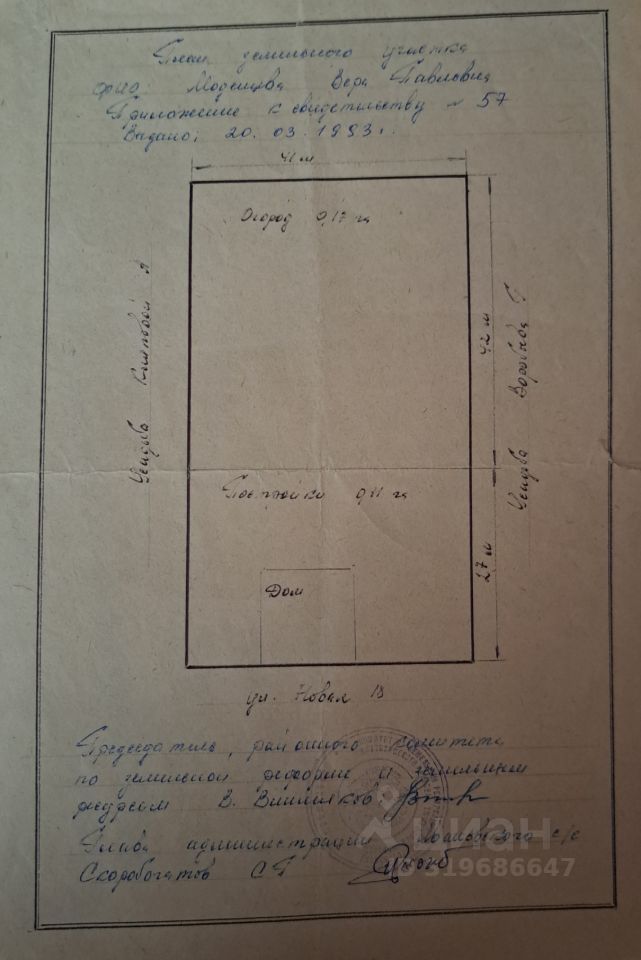 План земельного участка
фио: Вера Павловна
Приложение к свидетельству № 57
Выдано: 20. 03. 1993 г.
41 м
Огород 0,17 га
Усадьба А
42 м
Усадьба Воробьёва Г
Постройки 0,11 га
27 м
Дом
ул. Новая 18
Председатель, районного комитета
по земельной реформе и земельным
ресурсам В. Вишняков
Глава администрации с/с
Скоробогатов С Г
ЦИОН
9319686647